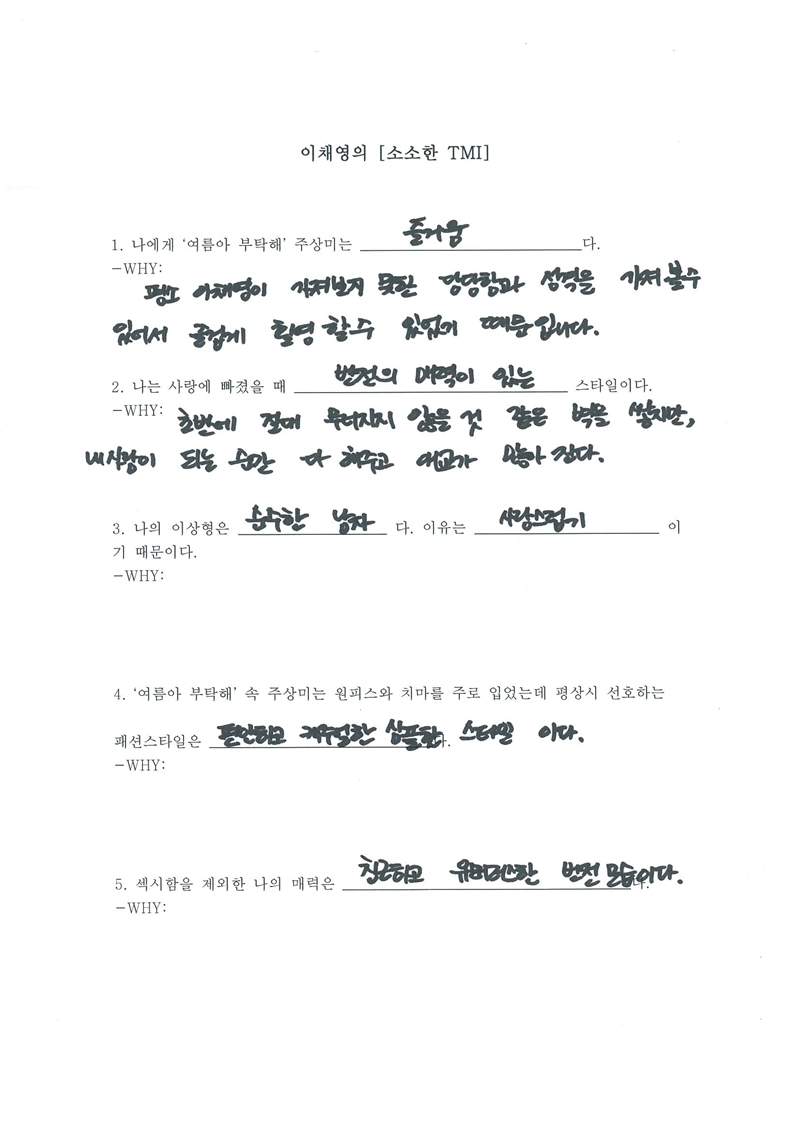 이채영의 [소소한 TMI]
1. 나에게 '여름아 부탁해' 주상미는 즐거움 다.
-WHY:
평소 이채영이 가져보지 못한 당당함과 성격을 가져 볼수
있어서 즐겁게 촬영 할 수 있었기 때문입니다.
2. 나는 사랑에 빠졌을 때 반전의 매력이 있는 스타일이다.
-WHY: 초반에 절대 무너지지 않을 것 같은 벽을 쌓지만,
내사랑이 되는 순간 다 해주고 애교가 많아 진다.
3. 나의 이상형은 순수한 남자 다. 이유는 사랑스럽기 이
기 때문이다.
-WHY:
4. '여름아 부탁해' 속 주상미는 원피스와 치마를 주로 입었는데 평상시 선호하는
패션스타일은 편안하고 캐주얼한 심플한 스타일 이다.
-WHY:
5. 섹시함을 제외한 나의 매력은 친근하고 유머러스한 반전 모습이다.
-WHY: